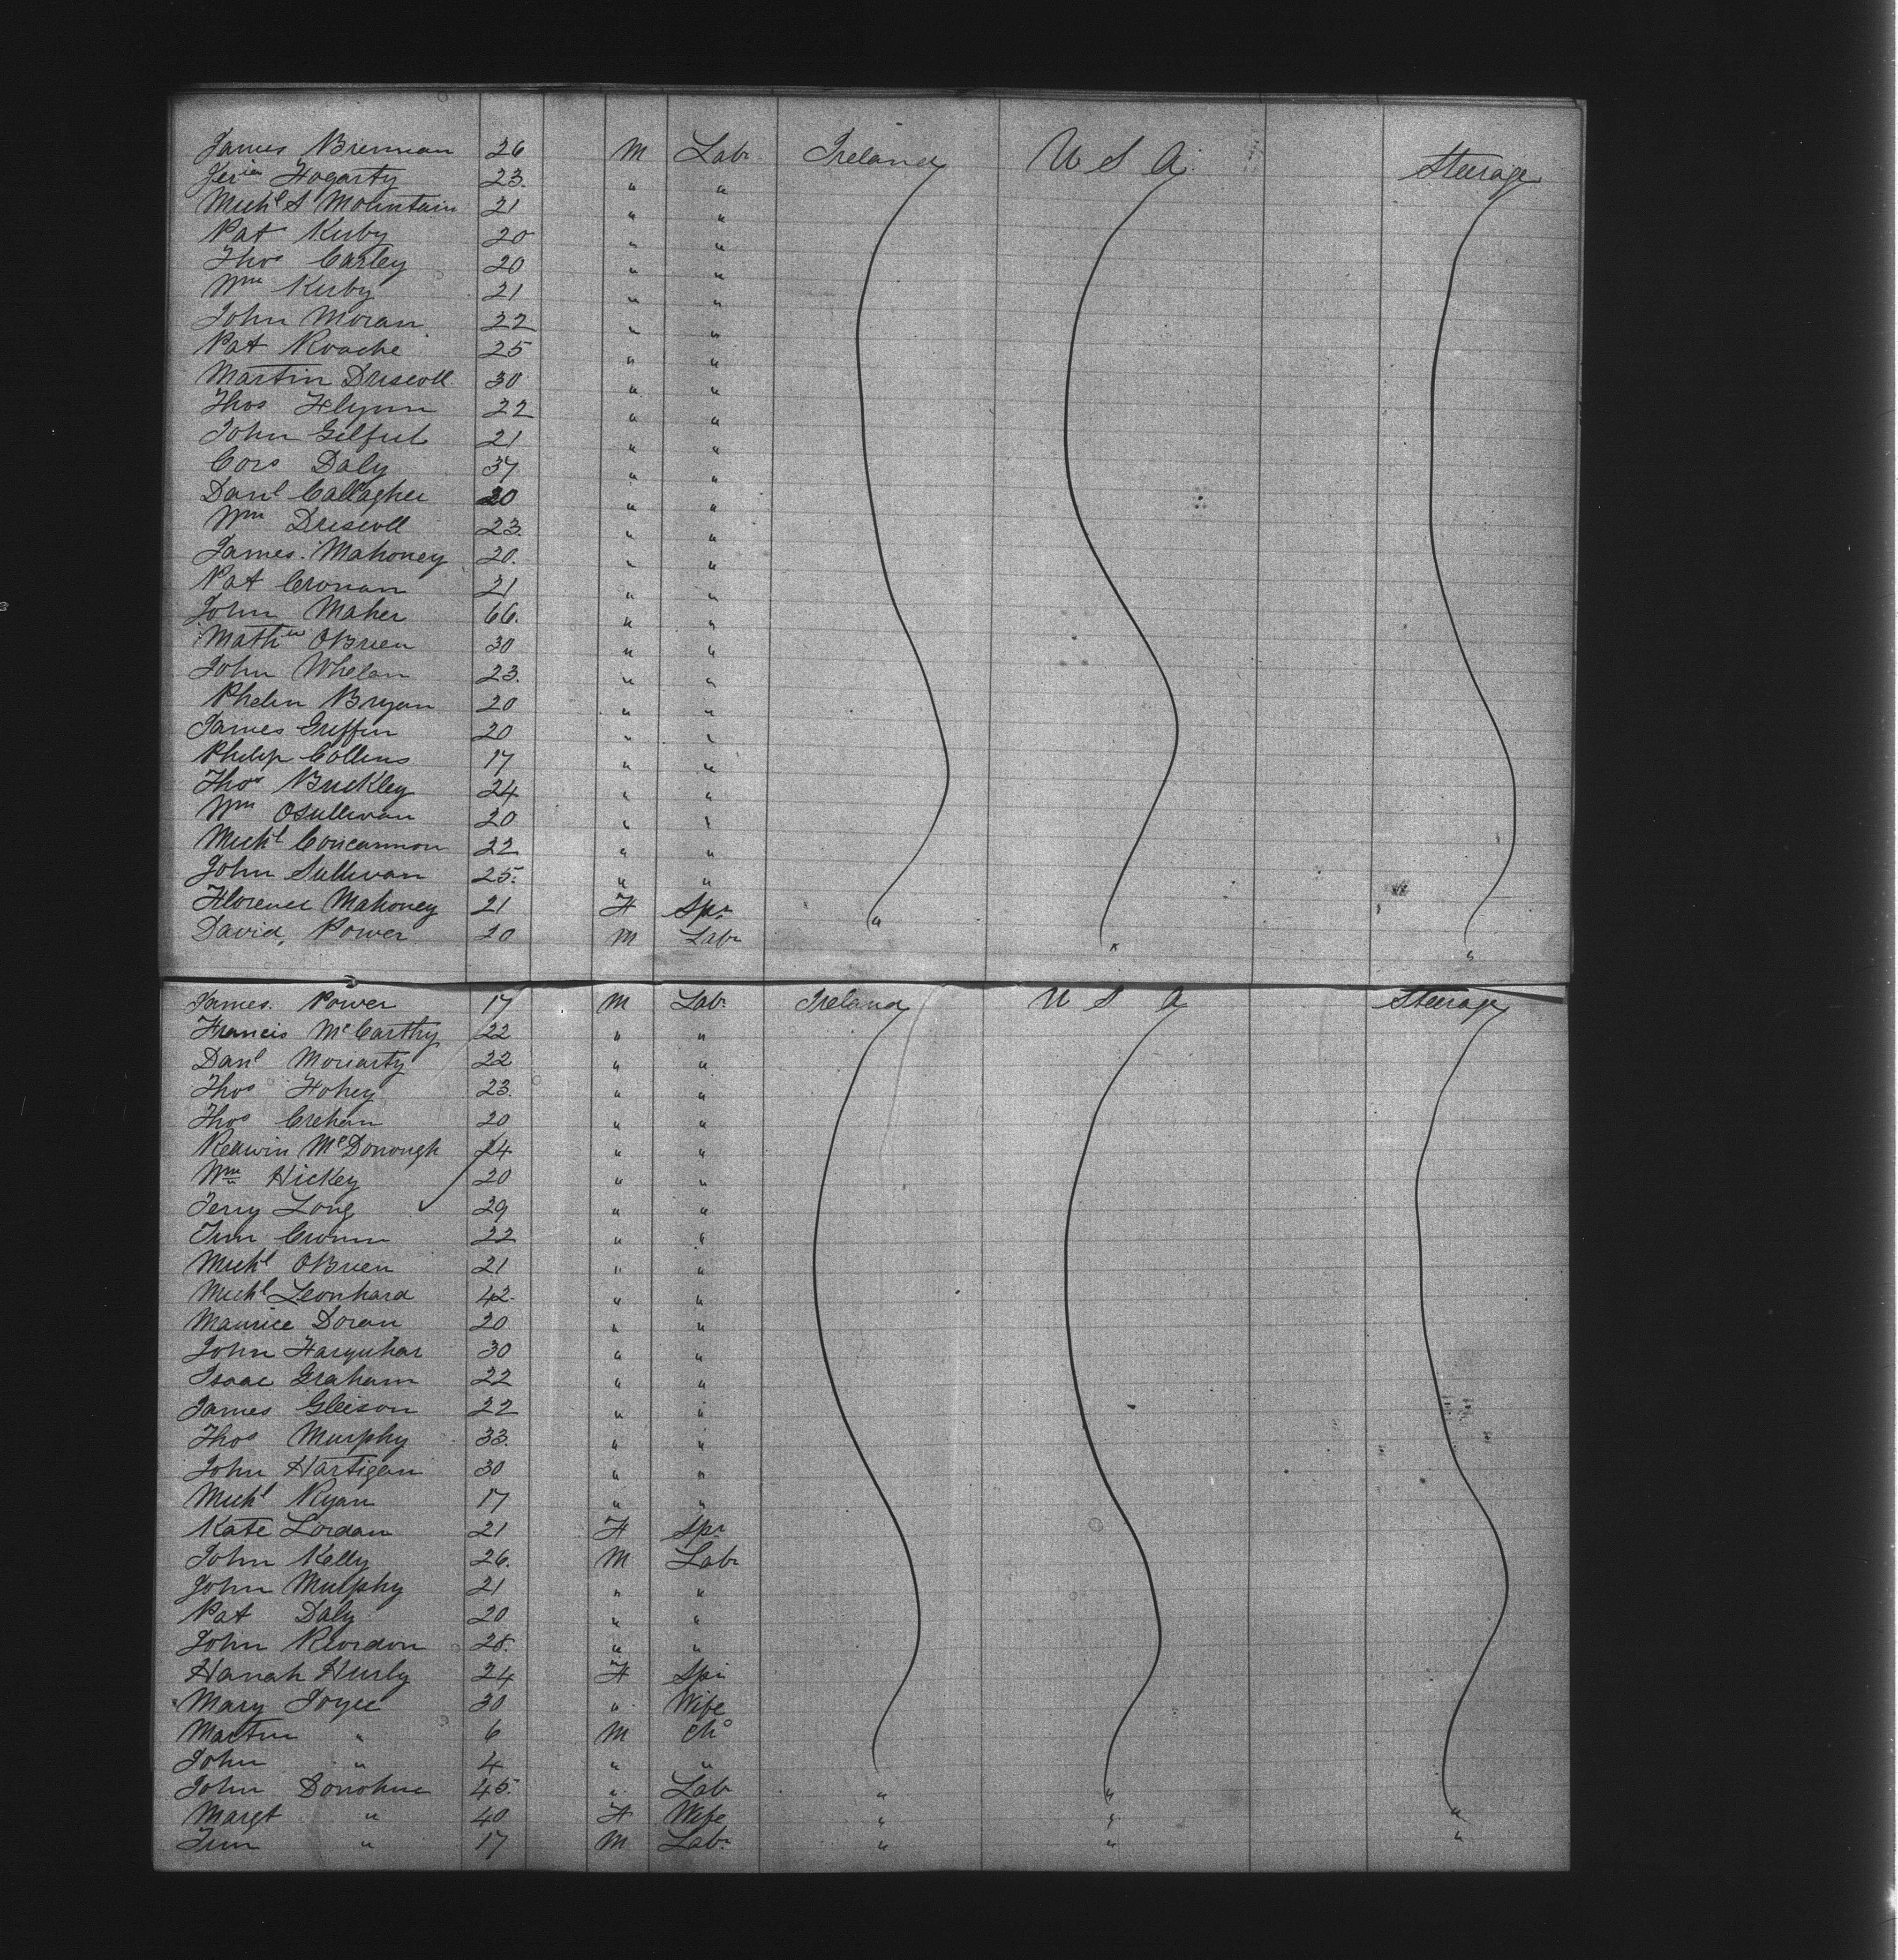 James Brennan 26 M Labr Ireland U S A Steerage
Jerich Fogarty 23. " "
Michl A Mountain 21 " "
Pat Kirby 20 " "
Thos Carley 20 " "
Wm Kirby 21 " "
John Moran 22 " "
Pat Roache 25 " "
Martin Driscoll 30 " "
Thos Flynn 22 " "
John 21 " "
Cors Daly 37 " "
Danl Callagher 20 " "
Wm Driscoll 23. " "
James Mahoney 20. " "
Pat Cronan 21 " "
John Maher 66. " "
Mathw OBrien 30 " "
John Whelan 23. " "
Phelin Bryan 20 " "
James Griffin 20 " "
Philip Collins 17 " "
Thos Buckley 24 " "
Wm OSullivan 20 " "
Michl Concannon 22 " "
John Sullivan 25. " "
Florence Mahoney 21 F Spr "
David Power 20 M Labr " "
James Power 17 M Labr Ireland U S A Steerage
Francis McCarthy 22 " "
Danl Moriarty 22 " "
Thos Fohey 23. " "
Thos Crehan 20 " "
Redwin McDonough 24 " "
Wm Hickey 20 " "
Jerry Long 29 " "
Tim Cronin 22 " "
Michl OBrien 21 " "
Michl Leonhard 42. " "
Maurice Doran 20 " "
John Farquhar 30 " "
Isaac Graham 22 " "
James Gleison 22 " "
Thos Murphy 33. " "
John Hartigan 30 " "
Michl Ryan 17 " "
Kate Lordan 21 F Spr
John Kelly 26. M Labr
John Murphy 21 " "
Pat Daly 20 " "
John Riordon 28. " "
Hanah Hurly 24 F Spr
Mary Joyce 30 " Wife
Martin " 6 M Ch
John " 4 " "
John Donohue 45. " Labr " "
Margt " 40 F Wife " " "
Tim " 17 M Labr " " "